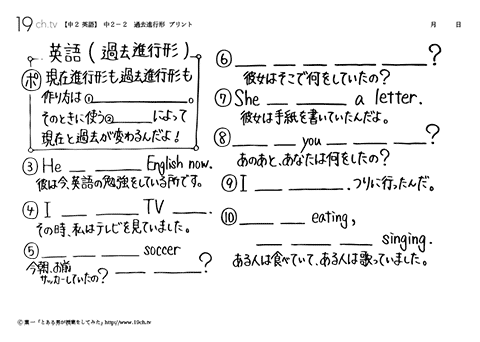 19ch.tv 【中2英語】 中2-2 過去進行形 プリント 月 日
英語(過去進行形)
ポ 現在進行形も過去進行形も
作り方は①____。
そのときに使う②____によって
現在と過去が変わるんだよ!
③ He __ ____ English now.
彼は今、英語の勉強をしている所です。
④ I __ ____ TV ____.
その時、私はテレビを見ていました。
⑤ __ __ ____ soccer
今朝、お前
サッカーしていたの? __ ____?
⑥ ____ __ __ ____ ____?
彼女はそこで何をしていたの?
⑦ She ____ ____ a letter.
彼女は手紙を書いていたんだよ。
⑧ ____ ____ you ____ ____ ____?
あのあと、あなたは何をしたの?
⑨ I ____ ____. つりに行ったんだ。
⑩ ____ ____ eating,
____ ____ ____ singing.
ある人は食べていて、ある人は歌っていました。
© 葉一「とある男が授業をしてみた」http://www.19ch.tv